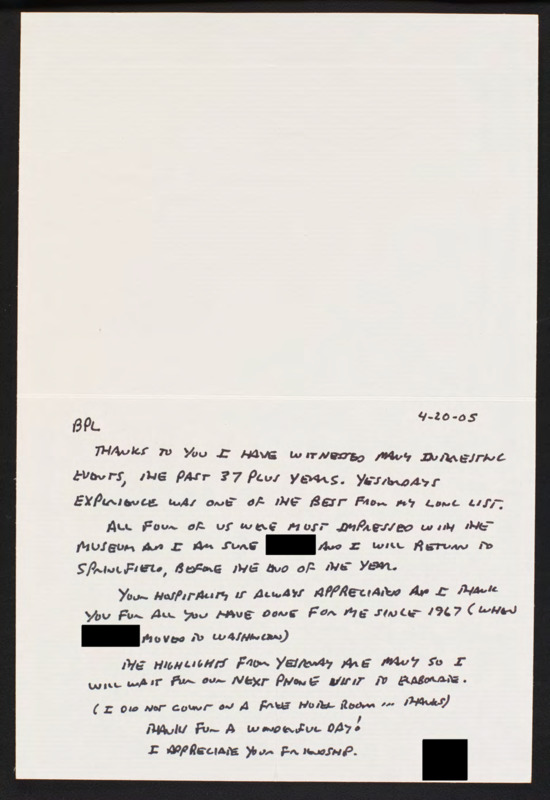 4-20-05
BPL
THANKS TO YOU I HAVE WITNESSED MANY INTERESTING
EVENTS, THE PAST 37 PLUS YEARS. YESTERDAYS
EXPERIENCE WAS ONE OF THE BEST FROM MY LONG LIST.
ALL FOUR OF US WERE MOST IMPRESSED WITH THE
MUSEUM AND I AM SURE AND I WILL RETURN TO
SPRINGFIELD, BEFORE THE END OF THE YEAR.
YOUR HOSPITALITY IS ALWAYS APPRECIATED AND I THANK
YOU FOR ALL YOU HAVE DONE FOR ME SINCE 1967 (WHEN
MOVED TO WASHINGTON)
THE HIGHLIGHTS FROM YESTERDAY ARE MANY SO I
WILL WAIT FOR OUR NEXT PHONE VISIT TO ELABORATE.
(I DID NOT COUNT ON A FREE HOTEL ROOM ... THANKS)
THANK FOR A WONDERFUL DAY!
I APPRECIATE YOUR FRIENDSHIP.